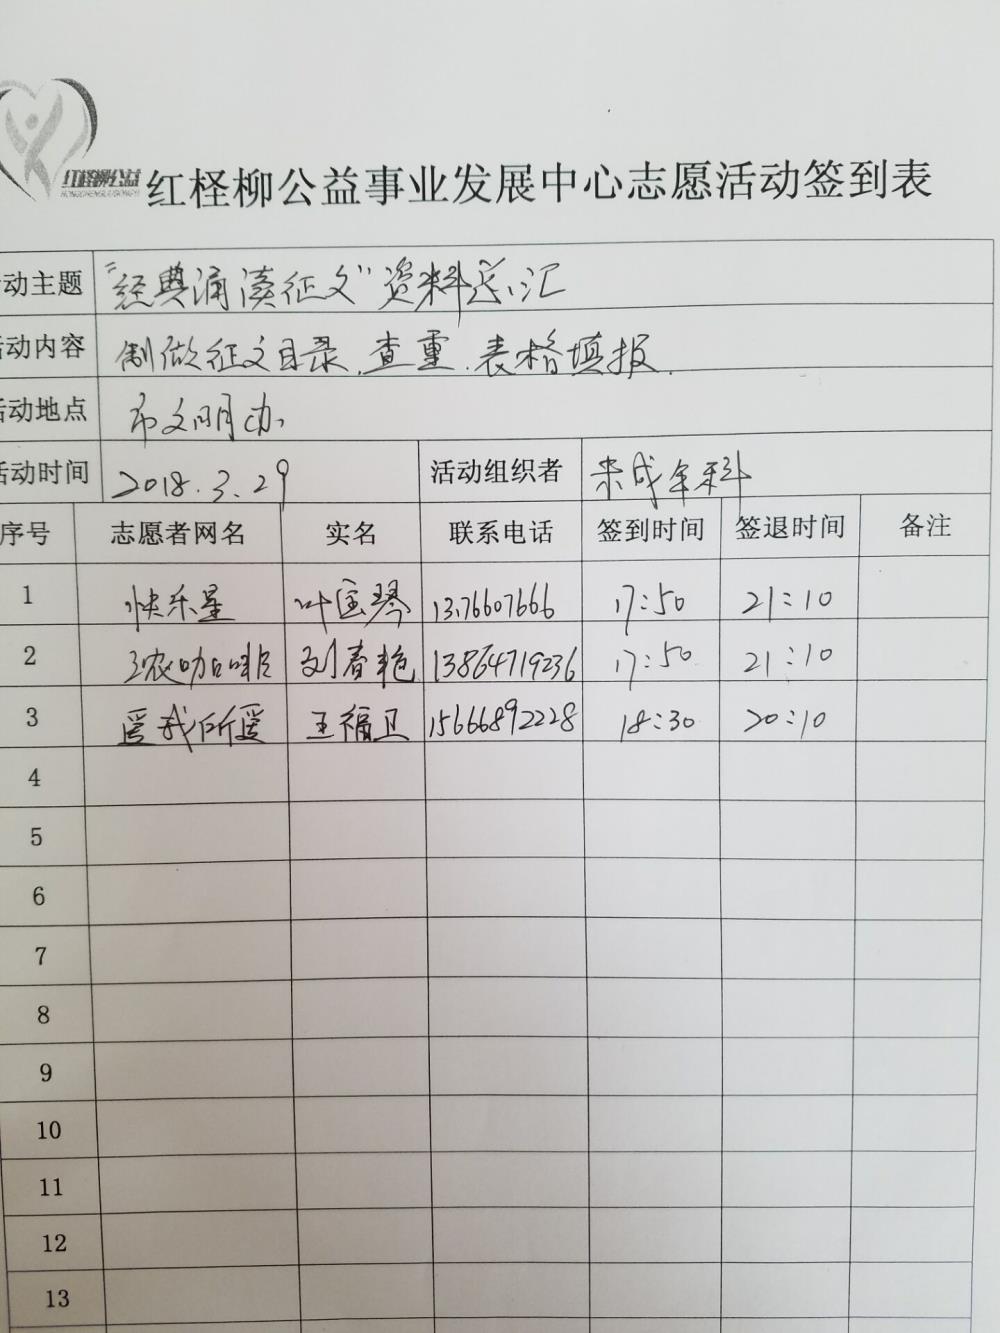 红柽柳公益
红柽柳公益事业发展中心志愿活动签到表
动主题 "经典诵读征文"资料总汇
活动内容 制做征文目录.查重.表格填报.
活动地点 市文明办
活动时间 2018.3.29 活动组织者 未成年科
序号 志愿者网名 实名 联系电话 签到时间 签退时间 备注
1 快乐星 叶宝琴 13176607666 17:50 21:10
2 浓咖啡 刘春艳 13864719236 17:50 21:10
3 爱我所爱 王福卫 15666892228 18:30 20:10
4
5
6
7
8
9
10
11
12
13